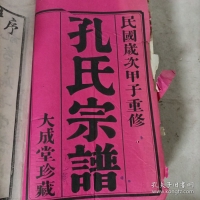 民國歲次甲子重修
孔氏宗譜
大成堂珍藏
序